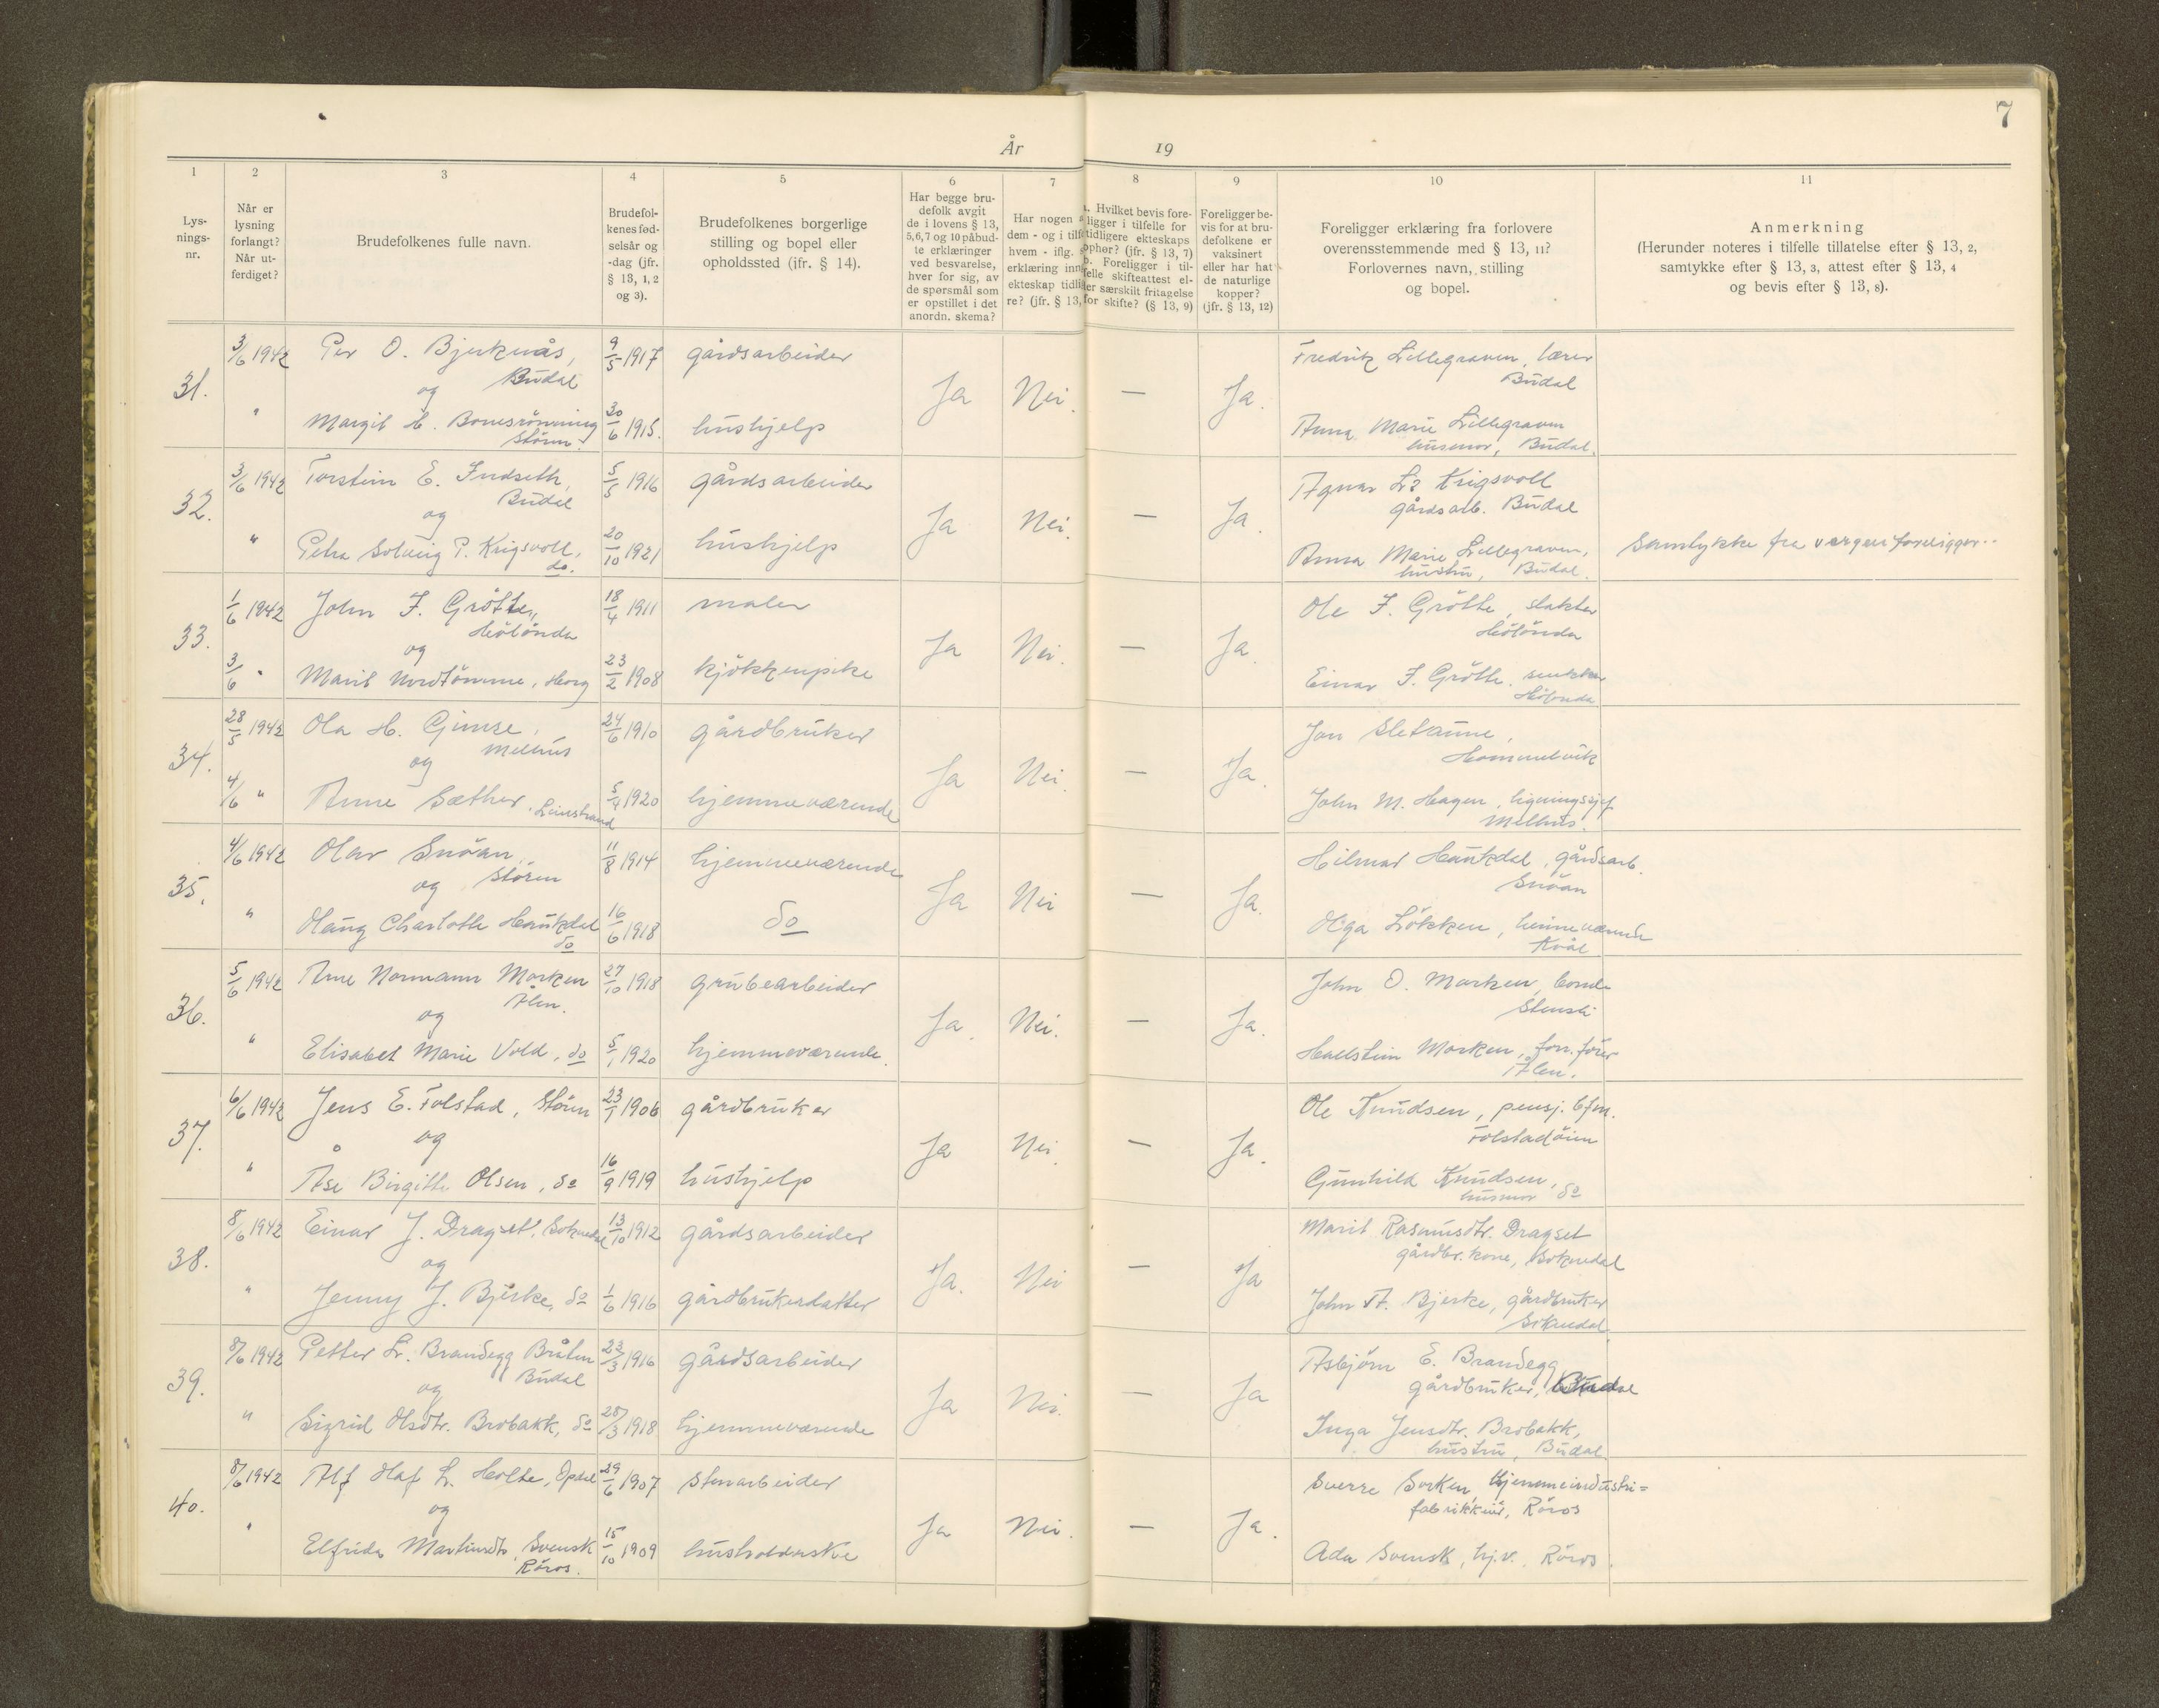 7
År 19
1 2 3 4 5 6 7 8 9 10 11
Lys-
nings-
nr.
Når er
lysning
forlangt?
Når ut-
ferdiget?
Brudefolkenes fulle navn.
Brudefol-
kenes fød-
selsår og
-dag (jfr.
§ 13, 1, 2
og 3).
Brudefolkenes borgerlige
stilling og bopel eller
opholdssted (jfr. § 14).
Har begge bru-
defolk avgit
de i lovens § 13,
5,6,7 og 10 påbud-
te erklæringer
ved besvarelse,
hver for sig, av
de spørsmål som
er opstillet i det
anordn. skema?
Har nogen a
dem - og i tilf
hvem - iflg. s
erklæring inn
ekteskap tidli
re? (jfr. § 13,
a. Hvilket bevis fore-
ligger i tilfelle for
tidligere ekteskaps
ophør? (jfr. § 13, 7)
b. Foreligger i til-
felle skifteattest el-
ler særskilt fritagelse
for skifte? (§ 13, 9)
Foreligger be-
vis for at bru-
defolkene er
vaksinert
eller har hat
de naturlige
kopper?
(jfr. § 13, 12)
Foreligger erklæring fra forlovere
overensstemmende med § 13, 11?
Forlovernes navn, stilling
og bopel.
Anmerkning
(Herunder noteres i tilfelle tillatelse efter § 13, 2,
samtykke efter § 13, 3, attest efter § 13, 4
og bevis efter § 13, 8).
3/6 1942 Per O. Bjerknås, 9/5 1917 gårdsarbeider Fredrik Lillegraven, lærer
Budal Budal
31. og Ja Nei. — Ja.
" Margit H. Bonesrønning 30/6 1915. hushjelp Anna Marie Lillegraven
Støren. husmor, Budal.
3/6 1942 Torstein E. Indseth, 5/5 1916 gårdsarbeider Agnar L? Krigsvoll
Budal gårdsarb. Budal
32. og Ja Nei. — Ja.
" Petra Solveig P. Krigsvoll, 20/10 1921 hushjelp Anna Marie Lillegraven, Samtykke fra vergen foreligger.
do. hustru, Budal.
1/6 1942 John F. Grøtte, 18/4 1911 maler Ole F. Grøtte, slakter
Hølonda Hølonda
33. og Ja Nei. — Ja.
3/6 " Marit Nordtømme, Horg 23/2 1908 kjøkkenpike Einar F. Grøtte. snekker
Hølonda
28/5 1942 Ola H. Gimse, 24/6 1910 gårdbruker Jon Sletaune,
Melhus Hommelvik
34. og Ja Nei — Ja.
4/6 " Anne Sæther, Leinstrand 5/4 1920 hjemmeværende John M. Hagen, ligningssjef
Melhus.
4/6 1942 Olav Snøan, 11/8 1914 hjemmeværende Hilmar Haukdal, gårdsarb.
Støren Snøan
35. og Ja Nei — Ja.
" Olaug Charlotte Haukdal 16/6 1918 do Olga Løkken, heimeværende
do Kvål
5/6 1942 Arne Normann Morken 27/10 1918 grubearbeider John O. Morken, bonde
Ålen.
36. og Ja. Nei. — Ja.
" Elisabet Marie Vold, do 5/1 1920 hjemmeværende. Hallstein Morken, forr.fører
Ålen.
6/6 1942 Jens E. Folstad, Støren 23/1 1906 gårdbruker Ole Knudsen, pensj. bfm.
Folstadøien
37. og Ja Nei. — Ja.
" Åse Birgitte Olsen, do 16/9 1919 hushjelp Gunhild Knudsen,
husmor do
8/6 1942 Einar J. Dragset, Soknedal 13/10 1912 gårdsarbeider Marit Rasmusdtr. Dragset
gårdbr.kone, Soknedal
38. og Ja. Nei — Ja
" Jenny J. Bjerke, do 1/6 1916 gårdbrukerdatter John A. Bjerke, gårdbruker
Soknedal.
8/6 1942 Petter L. Brandegg Bråten 23/3 1916 gårdsarbeider Asbjørn E. Brandegg
Budal gårdbruker, Budal
39. og Ja Nei. — Ja
" Sigrid Olsdtr. Brobakk, do 28/3 1918 hjemmeværende Inga Jensdtr. Brobakk,
hustru, Budal
8/6 1942 Alf Olaf L. Holte, Opdal 29/6 1907 stenarbeider Sverre Sorken, Hjemmeindustri=
fabrikkeier, Røros
40. og Ja Nei. — Ja.
" Elfrida Martinsdtr. Svensk 15/10 1909 husholderske Ada Svensk, hj.v. Røros.
Røros.